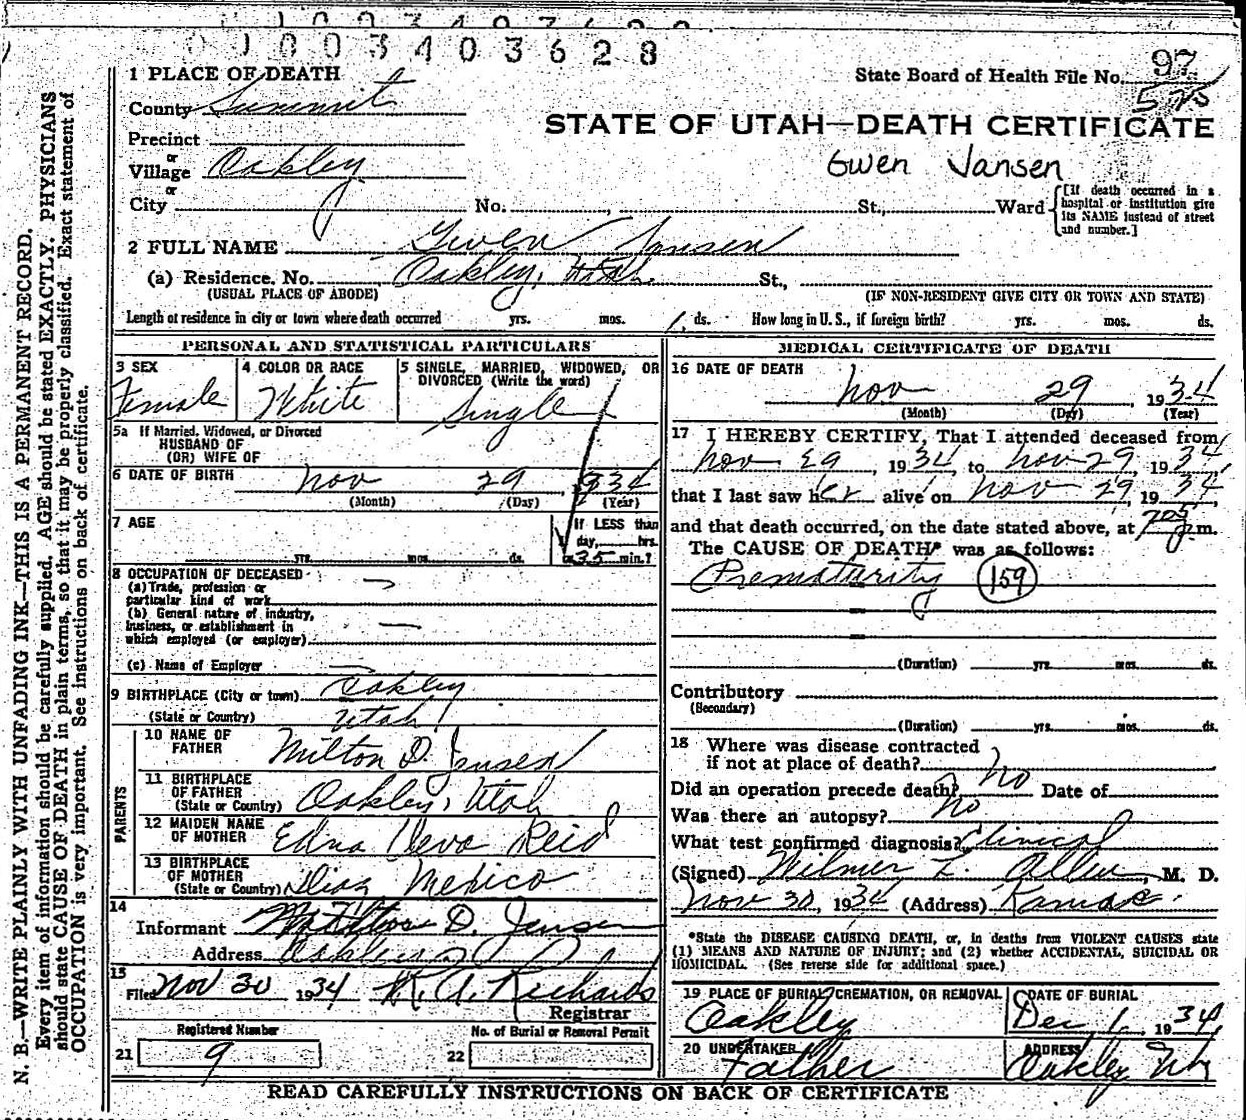 0 1 0 0 3 4 0 3 6 2 8
1 PLACE OF DEATH
State Board of Health File No. 97
575
County Summit
STATE OF UTAH—DEATH CERTIFICATE
Precinct
or
Village Oakley
Gwen Jansen
or
City No. St., Ward
[If death occurred in a hospital or institution give its NAME instead of street and number.]
2 FULL NAME Gwen Jansen
(a) Residence. No. Oakley, Utah. St.,
(USUAL PLACE OF ABODE) (IF NON-RESIDENT GIVE CITY OR TOWN AND STATE)
Length of residence in city or town where death occurred yrs. mos. 1 ds. How long in U. S., if foreign birth? yrs. mos. ds.
PERSONAL AND STATISTICAL PARTICULARS
3 SEX
Female
4 COLOR OR RACE
White
5 SINGLE, MARRIED, WIDOWED, OR
DIVORCED (Write the word)
Single
5a If Married, Widowed, or Divorced
HUSBAND OF
(OR) WIFE OF
6 DATE OF BIRTH Nov 29, 1934
(Month) (Day) (Year)
7 AGE
yrs. mos. ds.
If LESS than
day, hrs.
or 35 min.?
8 OCCUPATION OF DECEASED
(a) Trade, profession or
particular kind of work
(b) General nature of industry,
business, or establishment in
which employed (or employer)
(c) Name of Employer
9 BIRTHPLACE (City or town) Oakley
(State or Country) Utah
PARENTS
10 NAME OF
FATHER Milton D. Jensen
11 BIRTHPLACE
OF FATHER
(State or Country) Oakley, Utah
12 MAIDEN NAME
OF MOTHER Edna Neva Reid
13 BIRTHPLACE
OF MOTHER
(State or Country) Diaz Mexico
14
Informant Milton D. Jensen
Address Oakley
15
Filed Nov 30 1934 R. A. Richards
Registrar
Registered Number
21 9
No. of Burial or Removal Permit
22
MEDICAL CERTIFICATE OF DEATH
16 DATE OF DEATH
Nov 29, 1934
(Month) (Day) (Year)
17 I HEREBY CERTIFY, That I attended deceased from
Nov 29, 1934 to Nov 29, 1934,
that I last saw her alive on Nov 29, 1934
and that death occurred, on the date stated above, at 705 p.m.
The CAUSE OF DEATH* was as follows:
Prematurity 159
(Duration) yrs. mos. ds.
Contributory
(Secondary)
(Duration) yrs. mos. ds.
18 Where was disease contracted
if not at place of death?
Did an operation precede death? No Date of
Was there an autopsy? No
What test confirmed diagnosis? Clinical
(Signed) Wilmer L. Allen, M. D.
Nov 30, 1934 (Address) Kamas
*State the DISEASE CAUSING DEATH, or, in deaths from VIOLENT CAUSES state
(1) MEANS AND NATURE OF INJURY; and (2) whether ACCIDENTAL, SUICIDAL OR
HOMICIDAL. (See reverse side for additional space.)
19 PLACE OF BURIAL, CREMATION, OR REMOVAL
Oakley
DATE OF BURIAL
Dec 1, 1934
20 UNDERTAKER
Father
ADDRESS
Oakley Ut
READ CAREFULLY INSTRUCTIONS ON BACK OF CERTIFICATE
N. B.—WRITE PLAINLY WITH UNFADING INK—THIS IS A PERMANENT RECORD.
Every item of information should be carefully supplied. AGE should be stated EXACTLY. PHYSICIANS
should state CAUSE OF DEATH in plain terms, so that it may be properly classified. Exact statement of
OCCUPATION is very important. See instructions on back of certificate.